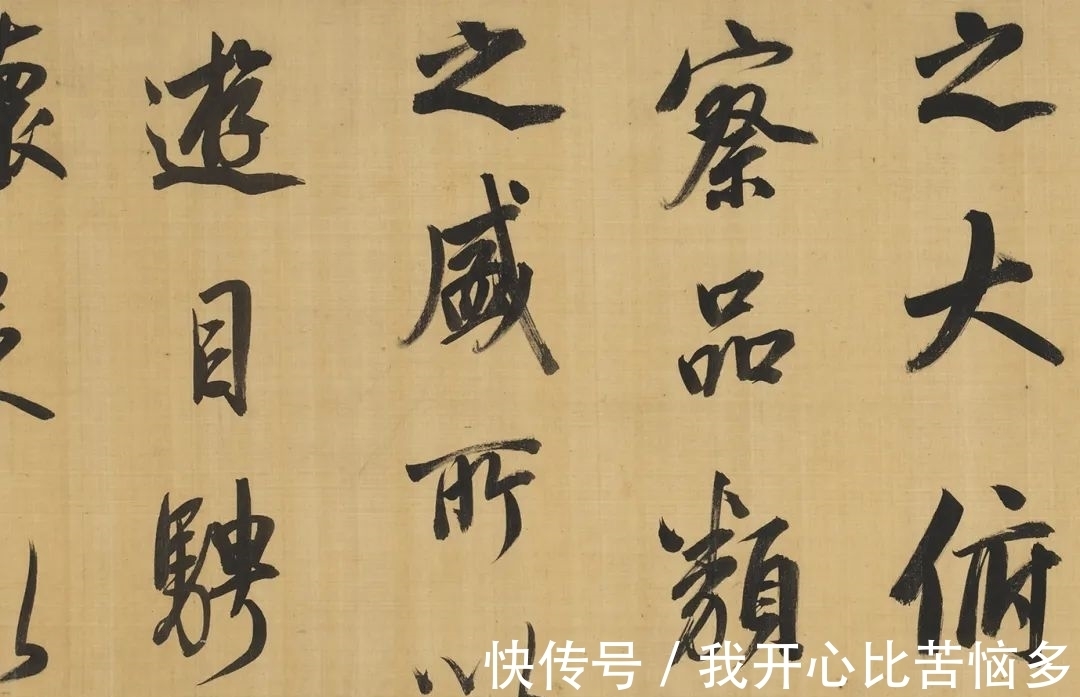 之大俯
察品類
之盛所以
遊目騁
懷足以
快传号 / 我开心比苦恼多